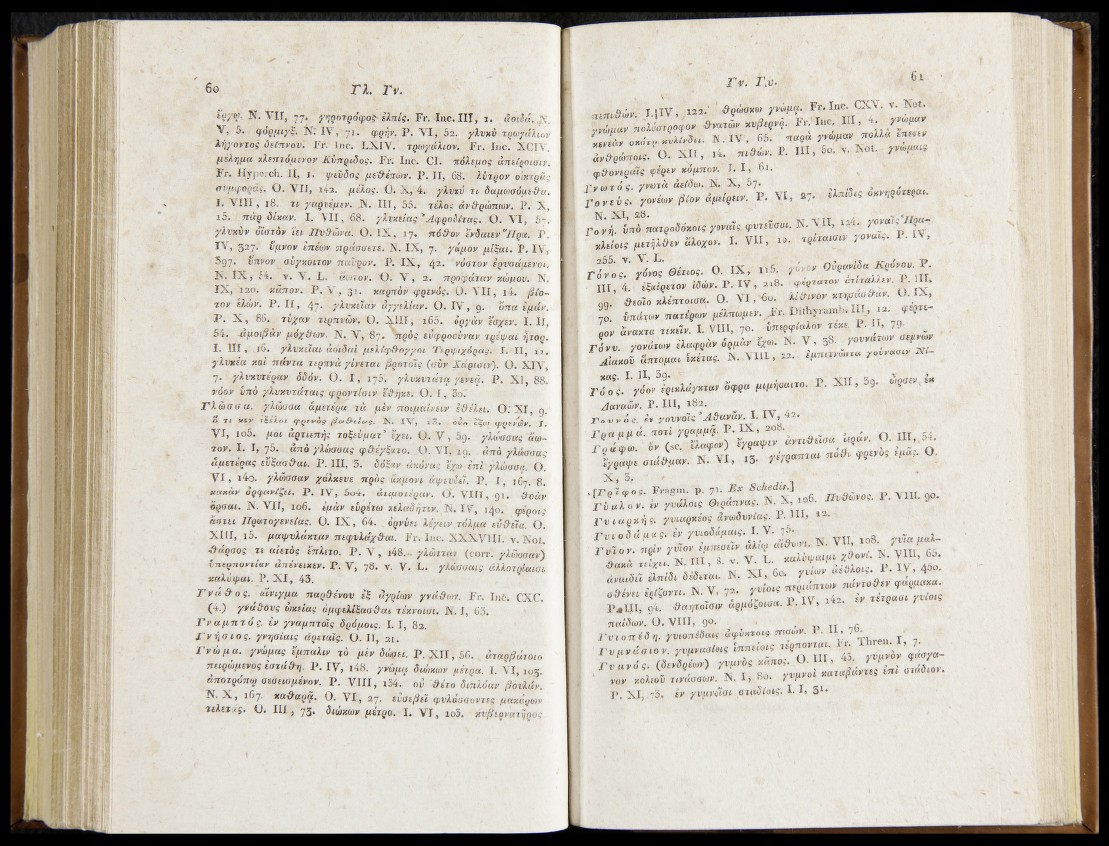 60 Γλ. Γν.
ἔργῳ. N. VII, 77. γηροτρόφος ἐλπίς. Fr. Inc. III, 1. ἀοιδά. N.
V, 5. φόρμιγξ. N. IV, 71. φρήν. P. VI, 52. γλυκὺ τρωγάλιον
λήγοντος δείπνου. Fr. Inc. LXIV. τρωγάλιον. Fr. Inc. XCIV.
μέλημα κλεπτόμενον Κύπριδος. Fr. Inc. CI. πόλεμος ἀπείροισιν.
Fr. Hyporch. II, 1. ψεῦδος μεθέπων. P. II, 68. λύτρον οἰκτρᾶς
συμφορᾶς. O. VII, 142. μέλος. O. X, 4. γλυκύ τι δαμωσόμεθα.
I. VIII, 18. τι γαρυέμεν. N. III, 55. τέλος ἀνθρώπων. P. X,
15. πὰρ δίκαν. I. VII, 68. γλυκείας Ἀφροδίτας. O. VI, 57.
γλυκὺν οἰστὸν ἵει Πυθῶνα. O. IX, 17. πόθον ἔνδαιεν Ἥρα. P.
IV, 327. ὕμνον ἐπέων πράσσετε. N. IX, 7. γάμον μῖξαι. P. IV,
397. ὕπνον σύγκοιτον παῦρον. P. IX, 42. νόστον ἐρυσάμενοι.
N. IX, 54. v. V. L. ἄωτον. O. V, 2. προφάταν κώμου. N.
IX, 120. κᾶπον. P. V, 31. καρπὸν φρενός. O. VII, 14. βίοτον
ἑλών. P. II, 47. γλυκεῖαν ἀγγελίαν. O. IV, 9. ὄπα ἐμάν.
P. X, 86. τύχαν τερπνῶν. O. XIII, 165. ὀργὰν ἔσχεν. I. II,
54. ἀμοιβὰν μόχθων. N. V, 87. πρὸς εὐφροσύναν τρέψαι ἦτορ.
I. III, 16. γλυκεῖαι ἀοιδαὶ μελίφθογγοι Τερψιχόρας. I. II, 11.
γλυκέα καὶ πάντα τερπνὰ γίνεται βροτοῖς (σὺν Χάρισιν). O. XIV,
7. γλυκυτέραν ὁδόν. O. I, 175. γλυκυτάτᾳ γενεᾷ. P. XI, 88.
νόον ὑπὸ γλυκυτάταις φροντίσιν ἔθηκε. O. I, 30.
Γλῶσσα. γλῶσσα ἁμετέρα τὰ μὲν ποιμαίνειν ἐθέλει. O. XI, 9.
VI, 105. μοι ἀρτιεπής· τοξεύματ' ἔχει. O. V, 59. γλώσσας ἄωτον.
I. I, 75. ἀπὸ γλώσσας φθέγξατο. O. VI, 19. ἀπὸ γλώσσας
ἁμετέρας εὔξασθαι. P. III, 3. δόξαν ἀκόνας ἔχω ἐπὶ γλώσσᾳ. O.
VI, 140. γλῶσσαν χάλκευε πρὸς ἄκμονι ἀψευδεῖ. P. I, 167. 8.
κακὰν ὀρφανίζει. P. IV, 504. ἀτιμοτέραν. O. VIII, 91. θοὰν
ὄρσαι. N. VII, 106. ἐμὰν εὑρέτω κελαδῆτιν. N. IV, 140. φέροις
ἄστει Πρωτογενείας. O. IX, 64. ὀρνύει λέγειν τόλμα εὐθεῖα. O.
XIII, 15. μαψυλάκταν πεφυλάχθαι. Fr. Inc. XXXVIII. v. Not.
θάρσος τε αἰετὸς ἔπλετο. P. V, 148. γλῶτται (corr. γλῶσσαν)
ὑπερποντίαν ἀπένεικεν. P. V, 78. v. V. L. γλώσσαις ἀλλοτρίαισι
καλύψαι. P. XI, 43.
Γνάθος. αἴνιγμα παρθένου ἐξ ἀγρίων γνάθων. Fr. Inc. CXC.
(4.) γνάθους ὠκείας ἀμφελίξασθαι τέκνοισι. N. I, 63.
Γναμπτός. ἐν γναμπτοῖς δρόμοις. I. I, 82.
Γνήσιος. γνησίαις ἀρεταῖς. O. II, 21.
Γνώμα. γνώμας ἔμπαλιν τὸ μὲν δώσει. P. XII, 56. ἀταρβάτοιο
πειρώμενος ἐστάθη. P. IV, 148. γνώμᾳ διώκων μέτρα. I. VI, 103.
ἀποτρόπῳ σεσεισμένον. P. VIII, 134. οὐ θέτο διπλόαν βουλάν.
N. X, 167. καθαρᾷ. O. VI, 27. εὐσεβεῖ φυλάσσοντες μακάρων
τελετάς. O. III, 73. διώκων μέτρα. I. VI, 103. κυβερνατῆρος
Γν. Γυ. 61
πεπιθών. I. IV, 122. θρώσκω γνώμᾳ. Fr. Inc. CXV. v. Not.
γνώμαν πολύστροφον θνατῶν κυβερνᾷ. Fr. Inc. III, 4. γνώμαν
κενεὰν σκότῳ κυλίνδει. N. IV, 65. παρὰ γνώμαν πολλὰ ἔπεσεν
ἀνθρώποις. O. XII, 14. πιθών. P. III, 50. v. Not. γνώμαις
φθονεραῖς φέρεν κόμπον. I. I, 61.
Γνωτός. γνωτὰ ἀείδω. N. X, 57.
Γονεύς. γονέων βίον ἀμείρειν. P. VI, 27. ἐλπίδες ὀκνηρότεραι.
N. XI, 28.
Γονή. ὑπὸ πατροδόκοις γοναῖς φυτεῦσαι. N. VII, 124. γοναῖς Ἡρακλείοις
μετῆλθεν ἄλοχον. I. VII, 10. τρίταισιν γοναῖς. P. IV,
255. v. V. L.
Γόνος. γόνος Θέτιος. O. IX, 115. γόνον Οὐρανίδα Κρόνου. P.
III, 4. ἐξαίρετον ἰδών. P. IV, 218. φέρτατον ἀτίταλλεν. P. III,
99. θεοῖο κλέπτοισα. O. VI, 60. λίθινον κτησάσθαν. O. IX,
70. ὑπάτων πατέρων μέλπωμεν. Fr. Dithyramb. III, 12. φέρτερον
ἄνακτα τεκεῖν. I. VIII, 70. ὑπερφίαλον τέκε. P. II, 79.
Γόνυ. γονάτων ἐλαφρὰν ὁρμὰν ἔχω. N. V, 38. γουνάτων σεμνῶν
Αἰακοῦ ἅπτομαι ἱκέτας. N. VIII, 22. ἐμπιτνῶντα γούνασιν Νίκας.
I. II, 39.
Γόος. γόον ἐρικλάγκταν ὄφρα μιμήσαιτο. P. XII, 39. ὦρσεν ἐκ
Δαναῶν. P. III, 182.
Γουνός. ἐν γουνοῖς Ἀθανᾶν. I. IV, 42.
Γραμμά. ποτὶ γραμμᾷ. P. IX, 208.
Γράφω. ὃν (sc. ἔλαφον) ἔγραψεν ἀντιθεῖσα ἱεράν. O. III, 54.
ἔγραψε στάθμαν. N. VI, 13. γέγραπται πόθι φρενὸς ἐμᾶς. O.
X, 3.
[Γρῖφος. Fragm. p. 71. Ex Schediis.]
Γύαλον. ἐν γυάλοις Θεράπνας. N. X, 106. Πυθῶνος. P. VIII. 90.
Γυιαρκής. γυιαρκέος ἀνωδυνίας. P. III, 12.
Γυιοδάμας. ἐν γυιοδάμαις. I. V. 75.
Γυῖον. πρὶν γυῖον ἐμπεσεῖν ἁλίῳ αἴθωνι. N. VII, 108. γυῖα μαλθακὰ
τεύχει. N. III, 8. v. V. L. καλύψαιμι χθονί. N. VIII, 65.
ἀναιδεῖ ἐλπίδι δέδεται. N. XI, 60. γυίων ἀέθλοις. P. IV, 450.
σθένει ἐρίζοντι. N. V, 72. γυίοις περιάπτων πάντοθεν φάρμακα.
P. III, 94. θαητοῖσιν ἁρμόζοισα. P. IV, 142. ἐν τέτρασι γυίοις
παίδων. O. VIII, 90.
Γυιοπέδη. γυιοπέδαις ἀφύκτοις πεσών. P. II, 76.
Γυμνάσιον. γυμνασίοις ἱππείοις τέρπονται. Fr. Thren. I, 7.
Γυμνός. (δενδρέων) γυμνὸς κᾶπος. O. III, 43. γυμνὸν φάσγανον
κολεοῦ τινάσσων. N. I, 80. γυμνοὶ καταβάντες ἐπὶ στάδιον.
P. XI, 73. ἐν γυμνοῖσι σταδίοις. I. I, 31.